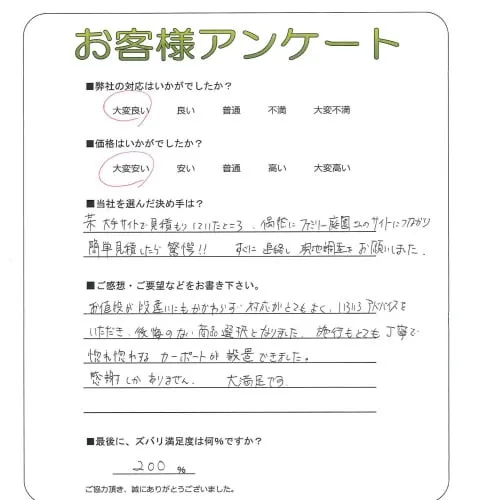 お客様アンケート
■弊社の対応はいかがでしたか?
大変良い 良い 普通 不満 大変不満
■価格はいかがでしたか?
大変安い 安い 普通 高い 大変高い
■当社を選んだ決め手は?
某 大手サイトで見積もりしていたところ、偶然にファミリー庭園さんのサイトにつながり
簡単見積したら驚愕!! すぐに連絡し現地調査をお願いしました。
■ご感想・ご要望などをお書き下さい。
お値段が段違いにもかかわらず対応がとてもよく、いろいろアドバイスを
いただき、後悔のない商品選択となりました。施行もとても丁寧で
惚れ惚れするカーポートが設置できました。
感謝しかありません。 大満足です。
■最後に、ズバリ満足度は何%ですか?
200 %
ご協力頂き、誠にありがとうございました。